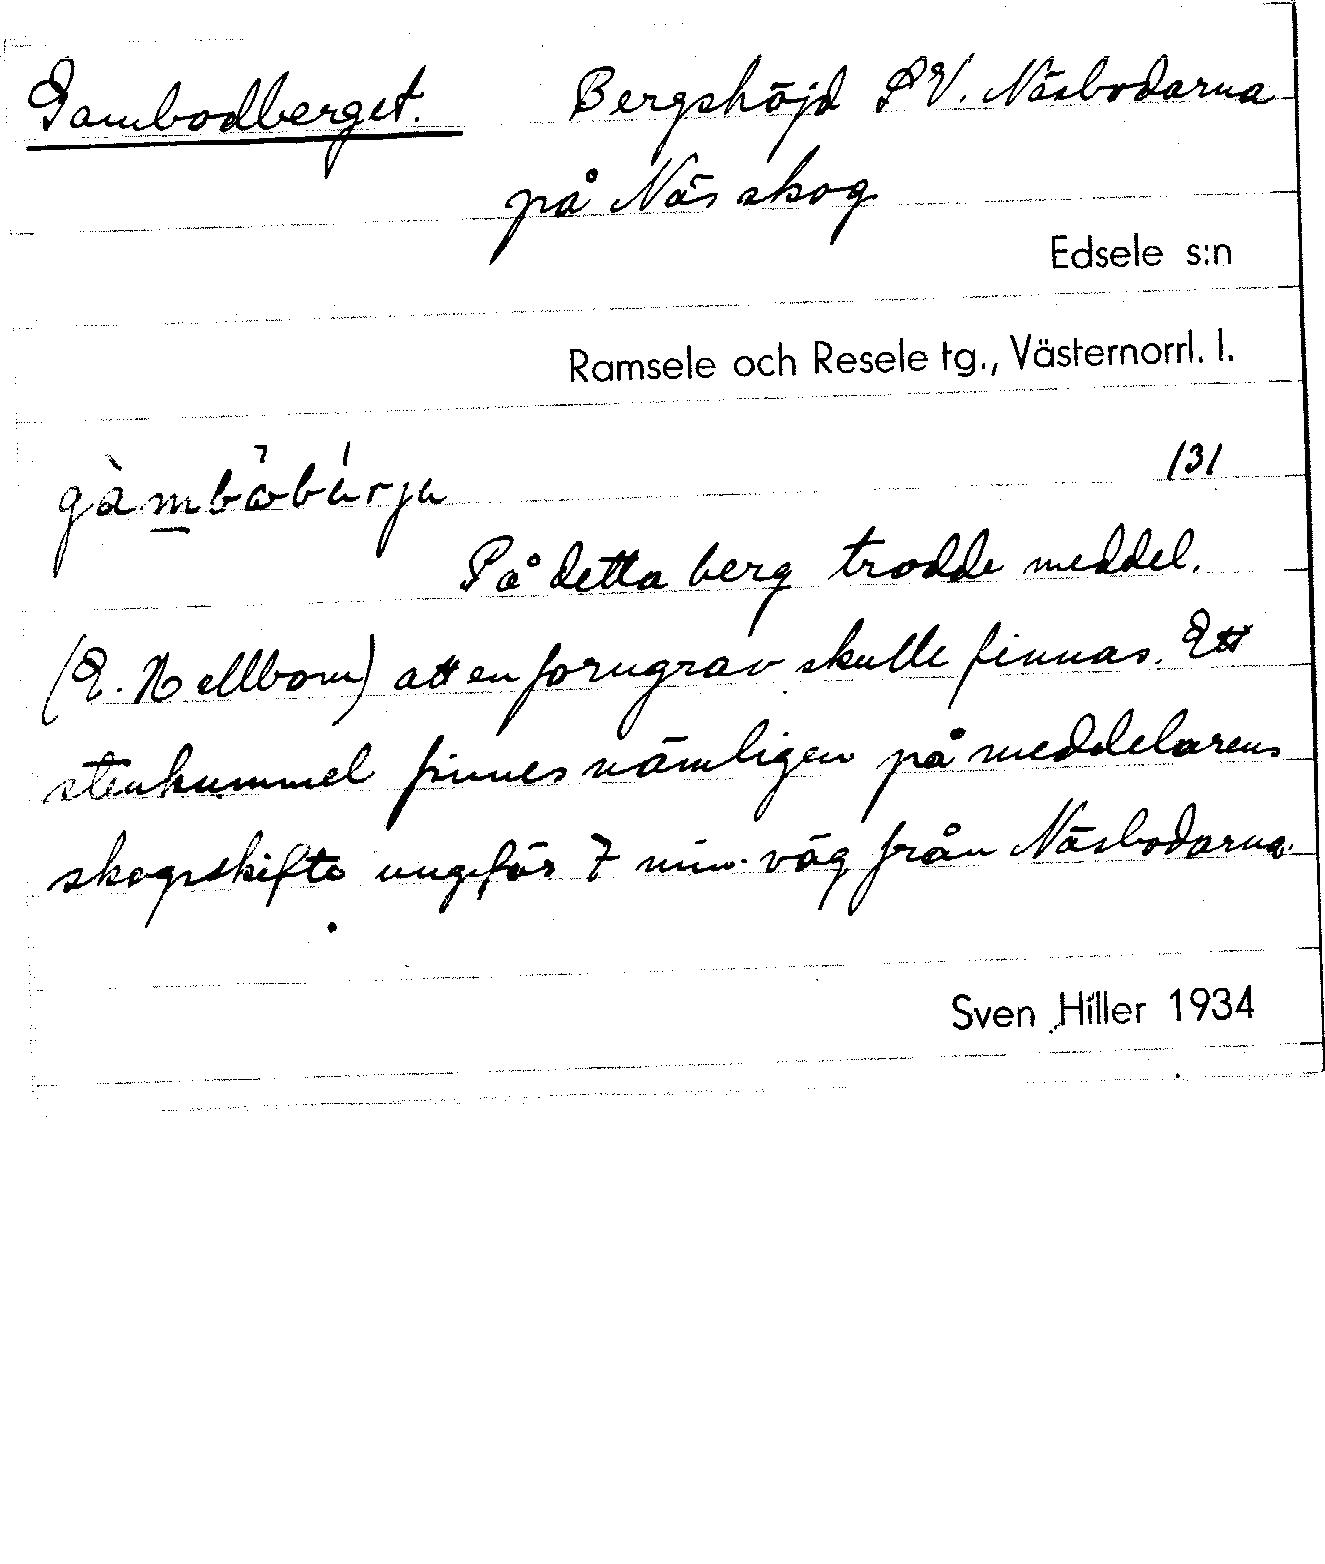 Gambodberget. Bergshöjd SV. Näsbodarna
på Näs skog
Edsele s:n
Ramsele och Resele tg., Västernorrl. l.
131
På detta berg trodde meddel.
(E. Hellbom) att en forngrav skulle finnas. Ett
stenkummel finnes nämligen på meddelarens
skogsskifte ungefär 7 min. väg från Näsbodarna.
Sven Hiller 1934